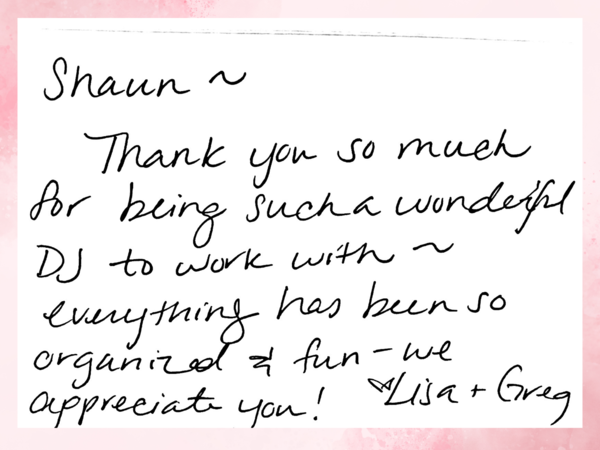 Shaun ~
Thank you so much
for being such a wonderful
DJ to work with ~
everything has been so
organized & fun - we
appreciate you! ♡Lisa + Greg